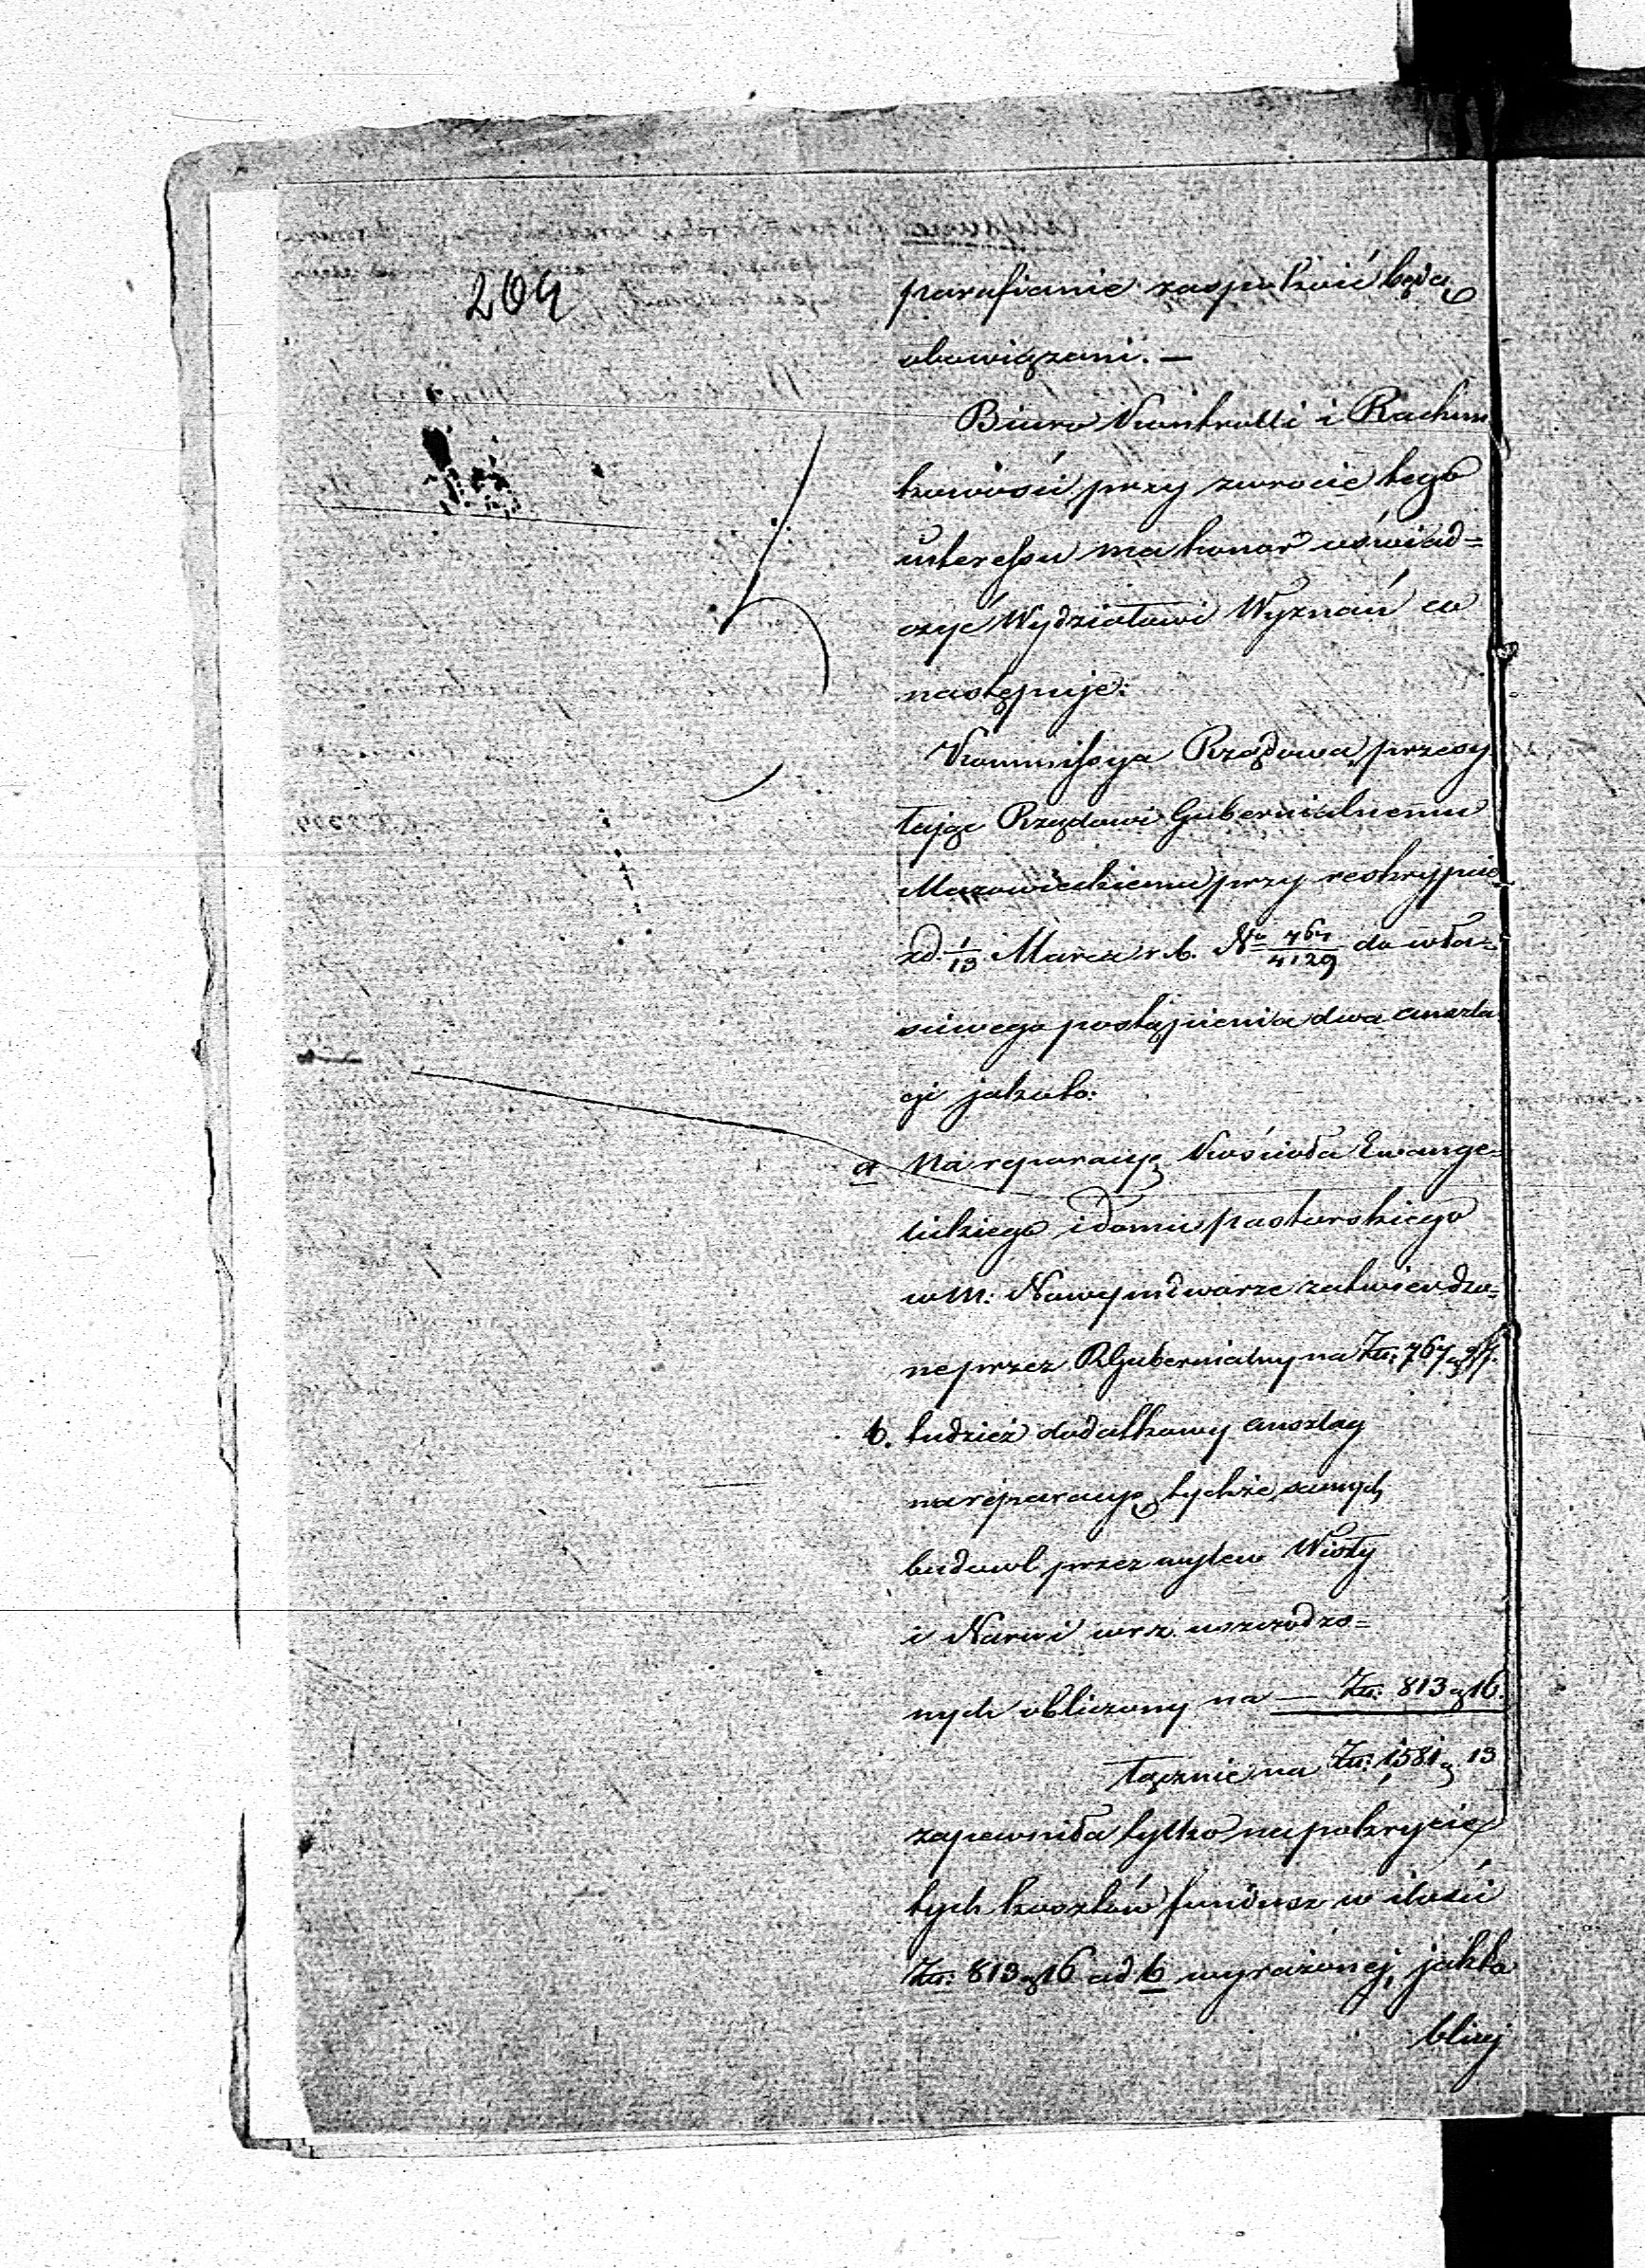 204
parafianie zaspokoić będą
obowiązani. —
Biuro Kontrolli i Rachun
kowości przy zwrocie tego
interessu ma honor oświad=
czyć Wydziałowi Wyznań co
następuje:
Kommissya Rządowa przesy
łając Rządowi Gubernialnemu
Mazowieckiemu przy reskrypcie
zd. 1/13 Marca r. b. No 767/4129 do wła=
ściwego postąpienia dwa anszla
gi jakoto:
a Na reparacyę Kościoła Ewange=
lickiego i domu pastorskiego
w M: Nowymdworze zatwierdzo=
ne przez RGubernialny na Złt: 767 g
b. tudzież dodatkowy anszlag
na reparacyę tychże samych
budowl przez wylew Wisły
i Narwi w r. z. uszkodzo=
nych obliczony na — Złt: 813 g 16.
łącznie na Złt: 1,581 g 13
zapewniła tylko na pokrycie
tych kosztów fundusz w ilości
Złt: 813 g 16 ad b wyrażonej, jak to
bliżej